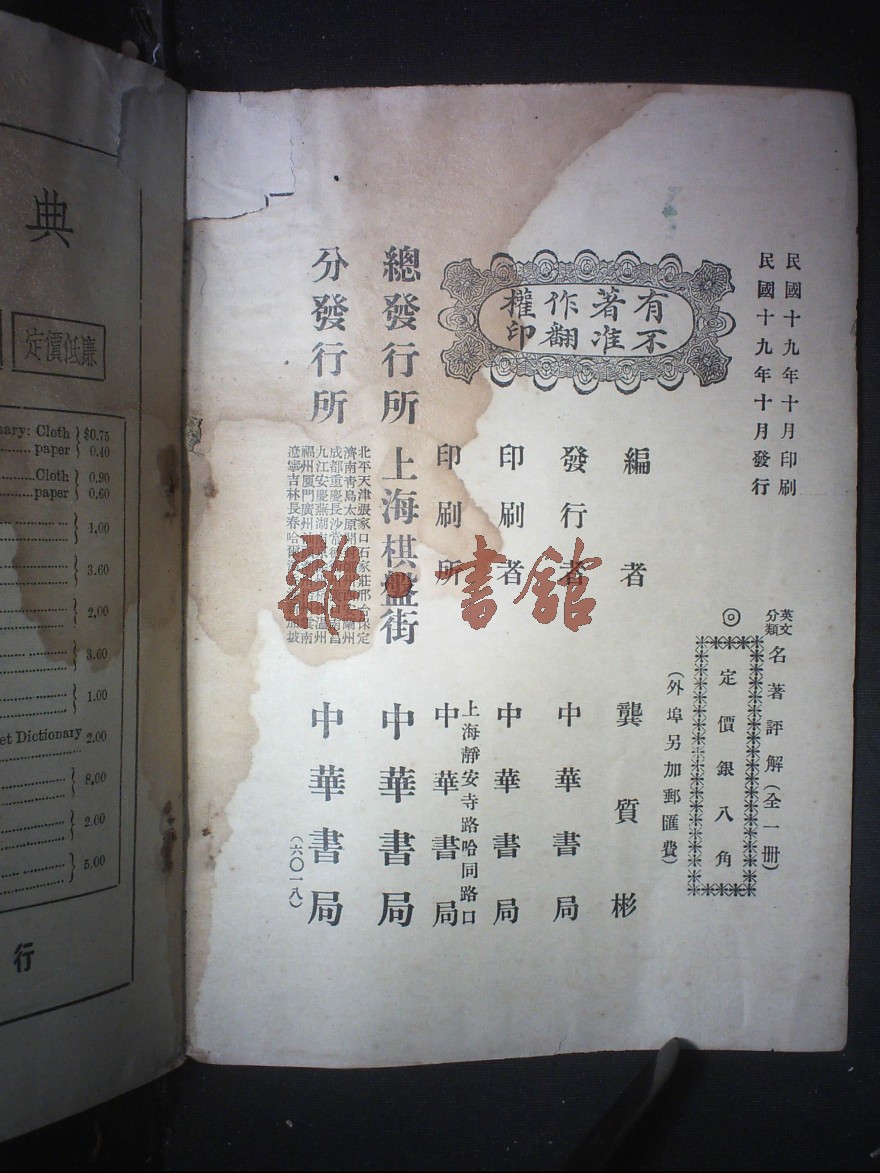 民國十九年十月印刷
民國十九年十月發行
英文分類名著評解(全一冊)
◎定價銀八角
(外埠另加郵匯費)
有著作權
不准翻印
編者 龔質彬
發行者 中華書局
印刷者 中華書局
上海靜安寺路哈同路口
印刷所 中華書局
總發行所 上海棋盤街 中華書局
分發行所 中華書局
北平天津張家口石家莊邢台保定
濟南青島太原開
成都重慶長沙常德
九江安慶蕪湖南
福州厦門廣州
遼寧吉林長春哈爾
(六〇一八)
雜·書館
典
定價低廉
ary: Cloth $0.75
paper 0.40
Cloth 0.90
paper 0.60
1.00
3.60
2.00
3.60
1.00
et Dictionary 2.00
8.00
2.00
5.00
行